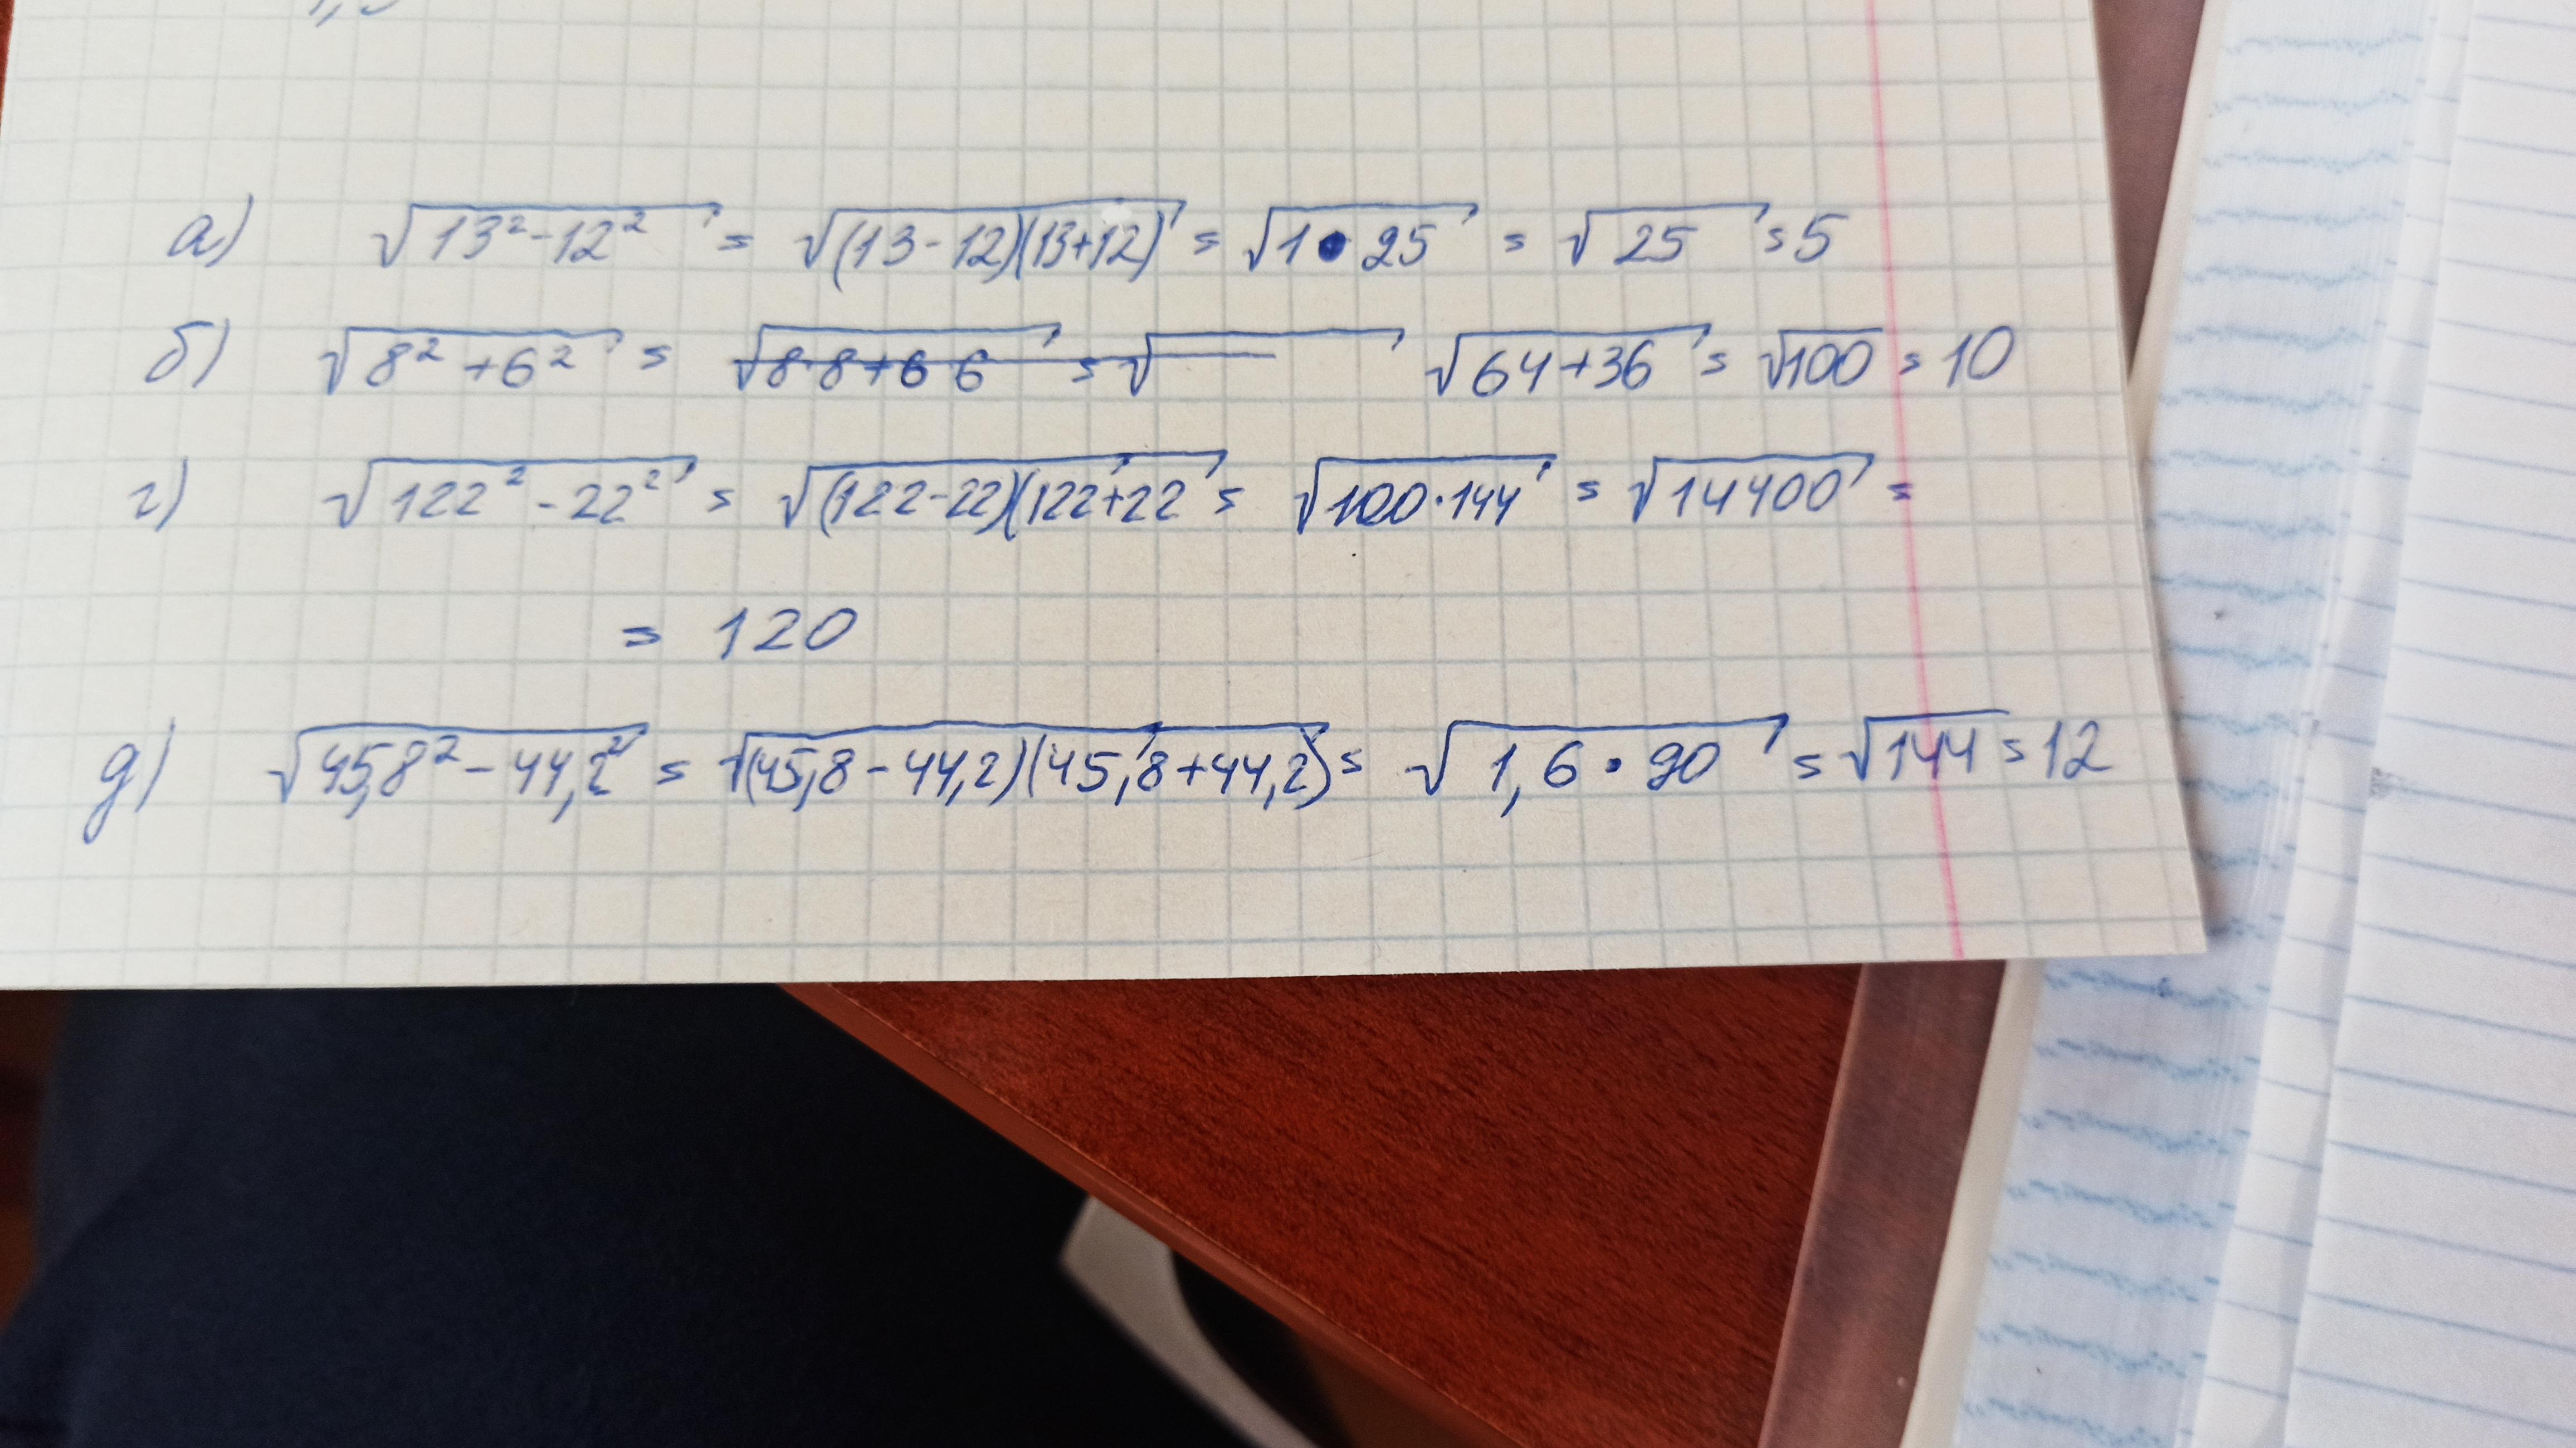 а) √13² - 12² = √(13 - 12)(13 + 12) = √1 • 25 = √25 = 5
б) √8² + 6² = √8·8 + 6 6 = √ √64 + 36 = √100 = 10
г) √122² - 22² = √(122 - 22)(122 + 22 = √100 · 144 = √14400 =
= 120
д) √45,8² - 44,2² = √(45,8 - 44,2)(45,8 + 44,2) = √1,6 · 90 = √144 = 12